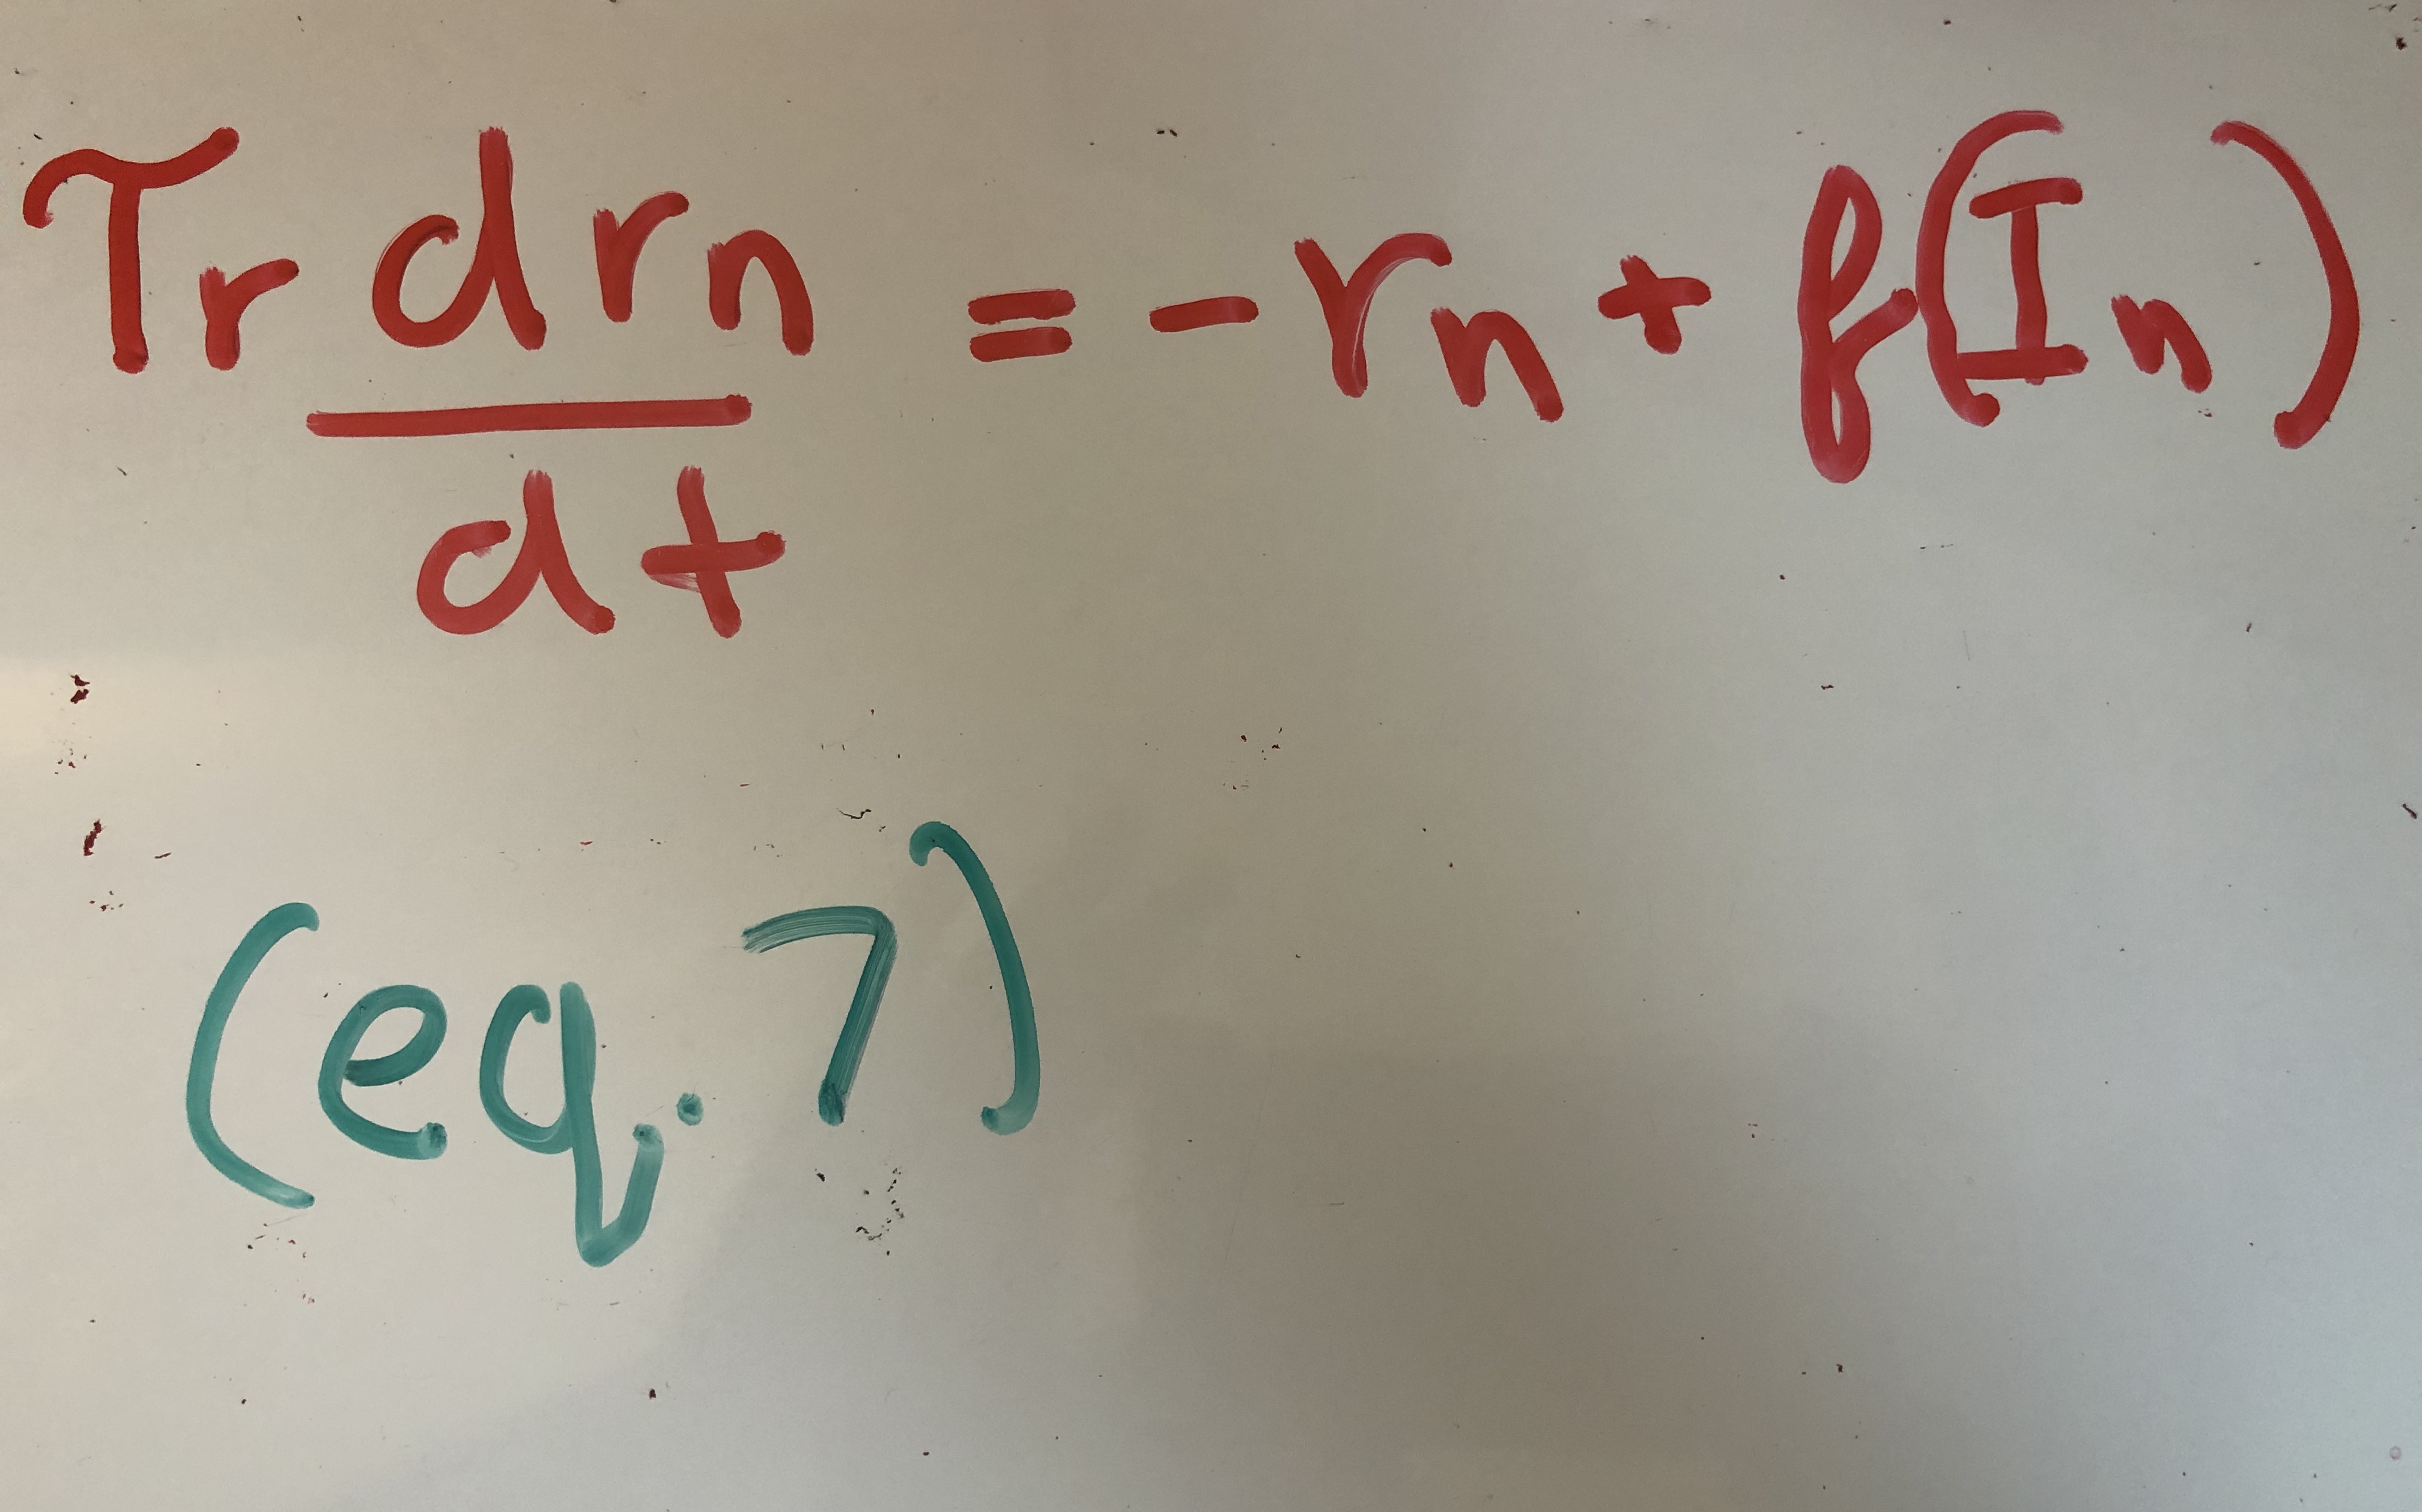 τ_r dr_n/dt = -r_n + f(I_n)
(eq. 7)